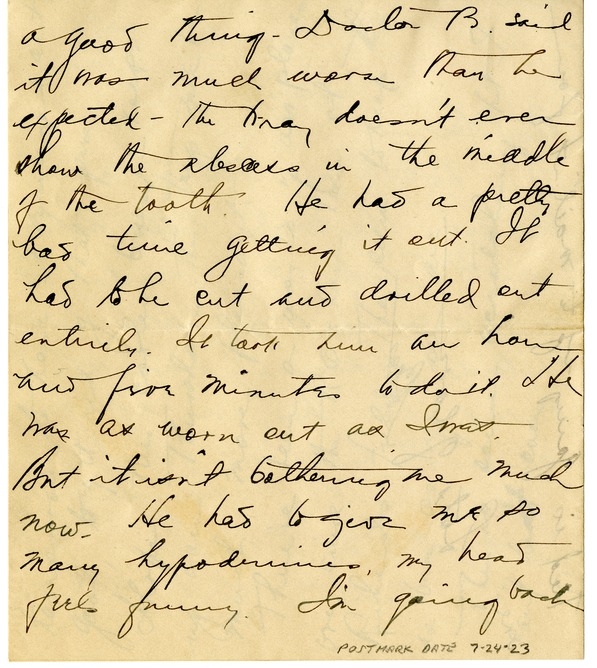 a good thing - Doctor B. said
it was much worse than he
expected - the Xray doesn't even
show the abscess in the middle
of the tooth. He had a pretty
bad time getting it out. It
had to be cut and drilled out
entirely. It took him an hour
and five minutes to do it. He
was as worn out as I was.
But it isn't bothering me much
now. He had to give me so
many hypodermics, my head
feels funny. I'm going back
POSTMARK DATE 7-24-23